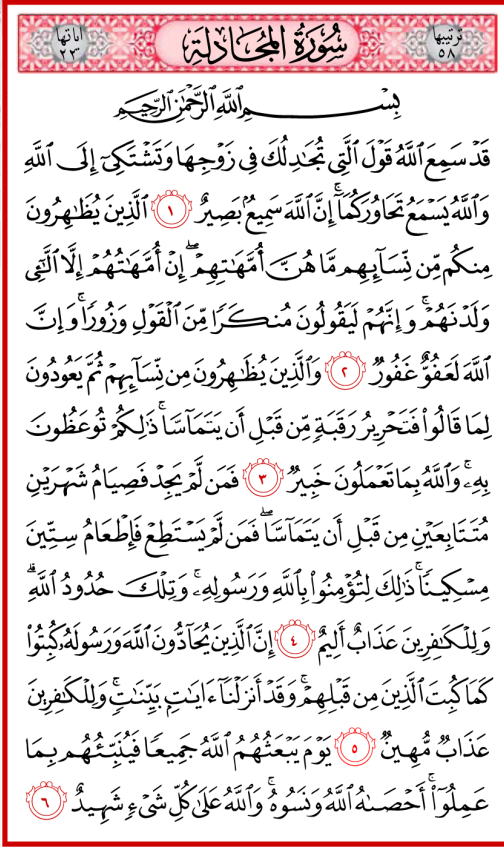 ترتيبها ٥٨ سُورَةُ المُجَادلَةِ آياتها ٢٣
بِسْمِ اللَّهِ الرَّحْمَٰنِ الرَّحِيمِ
قَدْ سَمِعَ ٱللَّهُ قَوْلَ ٱلَّتِي تُجَٰدِلُكَ فِي زَوْجِهَا وَتَشْتَكِيٓ إِلَى ٱللَّهِ
وَٱللَّهُ يَسْمَعُ تَحَاوُرَكُمَآۚ إِنَّ ٱللَّهَ سَمِيعُۢ بَصِيرٌ ١ ٱلَّذِينَ يُظَٰهِرُونَ
مِنكُم مِّن نِّسَآئِهِم مَّا هُنَّ أُمَّهَٰتِهِمْۖ إِنْ أُمَّهَٰتُهُمْ إِلَّا ٱلَّٰٓـِٔي
وَلَدْنَهُمْۚ وَإِنَّهُمْ لَيَقُولُونَ مُنكَرًا مِّنَ ٱلْقَوْلِ وَزُورًاۚ وَإِنَّ
ٱللَّهَ لَعَفُوٌّ غَفُورٌ ٢ وَٱلَّذِينَ يُظَٰهِرُونَ مِن نِّسَآئِهِمْ ثُمَّ يَعُودُونَ
لِمَا قَالُوا۟ فَتَحْرِيرُ رَقَبَةٍ مِّن قَبْلِ أَن يَتَمَآسَّاۚ ذَٰلِكُمْ تُوعَظُونَ
بِهِۦۚ وَٱللَّهُ بِمَا تَعْمَلُونَ خَبِيرٌ ٣ فَمَن لَّمْ يَجِدْ فَصِيَامُ شَهْرَيْنِ
مُتَتَابِعَيْنِ مِن قَبْلِ أَن يَتَمَآسَّاۖ فَمَن لَّمْ يَسْتَطِعْ فَإِطْعَامُ سِتِّينَ
مِسْكِينًاۚ ذَٰلِكَ لِتُؤْمِنُوا۟ بِٱللَّهِ وَرَسُولِهِۦۚ وَتِلْكَ حُدُودُ ٱللَّهِۗ
وَلِلْكَٰفِرِينَ عَذَابٌ أَلِيمٌ ٤ إِنَّ ٱلَّذِينَ يُحَآدُّونَ ٱللَّهَ وَرَسُولَهُۥ كُبِتُوا۟
كَمَا كُبِتَ ٱلَّذِينَ مِن قَبْلِهِمْۚ وَقَدْ أَنزَلْنَآ ءَايَٰتٍۭ بَيِّنَٰتٍۚ وَلِلْكَٰفِرِينَ
عَذَابٌ مُّهِينٌ ٥ يَوْمَ يَبْعَثُهُمُ ٱللَّهُ جَمِيعًا فَيُنَبِّئُهُم بِمَا
عَمِلُوٓا۟ۚ أَحْصَىٰهُ ٱللَّهُ وَنَسُوهُۚ وَٱللَّهُ عَلَىٰ كُلِّ شَيْءٍ شَهِيدٌ ٦